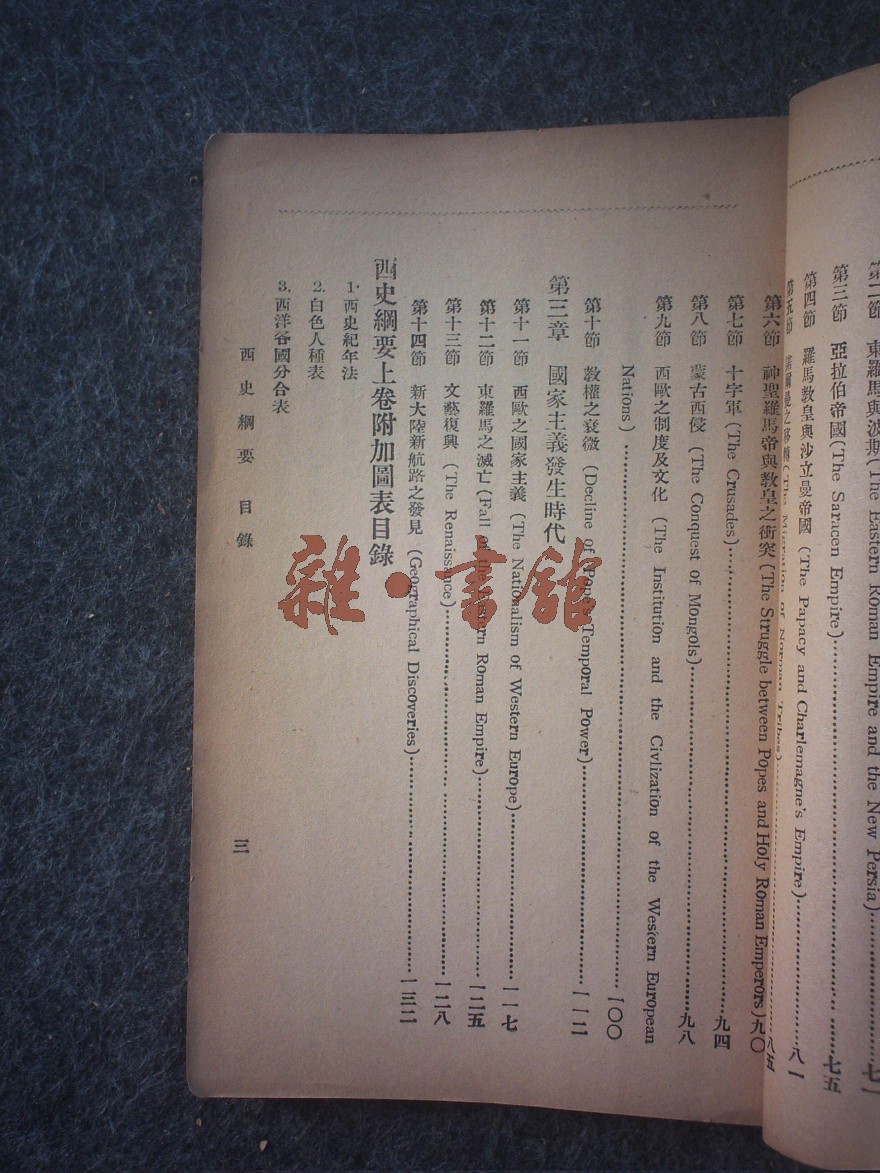 東羅馬與波斯(The Eastern Roman Empire and the New Persia)
第三節 亞拉伯帝國(The Saracen Empire)……七五
第四節 羅馬教皇與沙立曼帝國 (The Papacy and Charlemagne's Empire)……八一
第五節 諾爾曼之移轉(The Migration of Norman Tribes)……八五
第六節 神聖羅馬帝與教皇之衝突(The Struggle between Popes and Holy Roman Emperors)九〇
第七節 十字軍(The Crusades)……九四
第八節 蒙古西侵 (The Conquest of Mongols)……九八
第九節 西歐之制度及文化 (The Institution and the Civlization of the Western European
Nations)……一〇〇
第十節 教權之衰微 (Decline of Popes' Temporal Power)……一一二
第三章 國家主義發生時代
第十一節 西歐之國家主義 (The Nationalism of Western Europe)……一一七
第十二節 東羅馬之滅亡(Fall of the Eastern Roman Empire)……一二五
第十三節 文藝復興 (The Renaissance)……一二八
第十四節 新大陸新航路之發見 (Geographical Discoveries)……一三二
西史綱要上卷附加圖表目錄
1. 西史紀年法
2. 白色人種表
3. 西洋各國分合表
西史綱要 目錄
三
雜·書舘